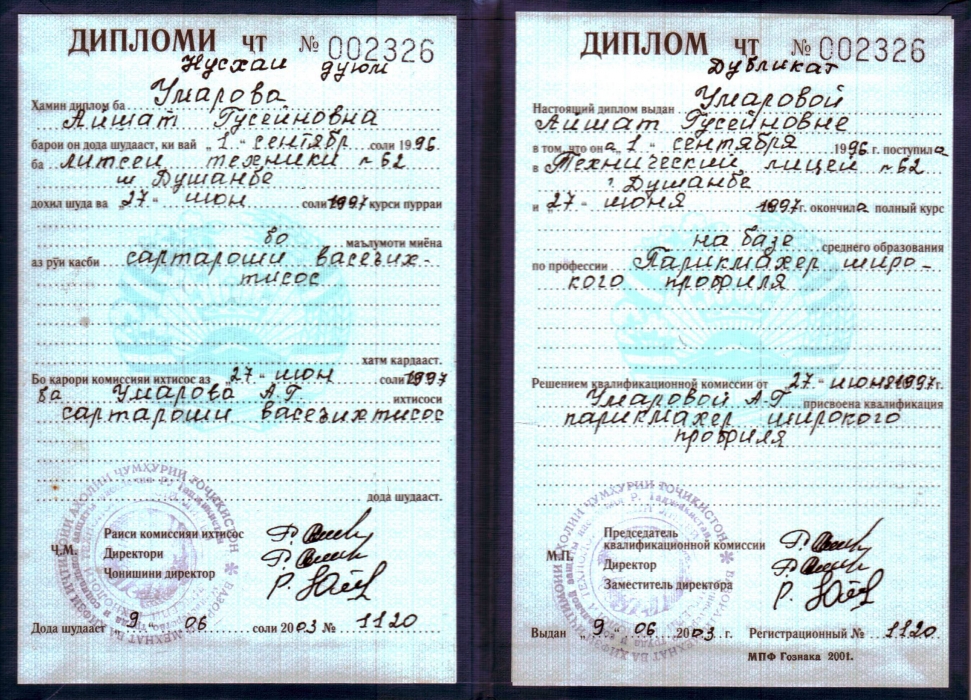 ДИПЛОМИ ЧТ № 002326
Нусхаи дуюм
Хамин диплом ба Умарова
Айшат Гусейновна
барои он дода шудааст, ки вай „ 1 “ сентябр соли 1996.
ба литсеи техники №62
ш Душанбе
дохил шуда ва „ 27 “ июн соли 1997 курси пурраи
бо маълумоти миёна
аз рӯи касби сартароши васеъих-
тисос
хатм кардааст.
Бо қарори комиссияи ихтисос аз „ 27 “ июн соли 1997
ба Умарова А.Г ихтисоси
сартароши васеъихтисос
дода шудааст.
Раиси комиссияи ихтисос
Ҷ.М. Директори
Чонишини директор
Дода шудааст „ 9 “ 06 соли 2003 № 1120
ДИПЛОМ ЧТ № 002326
Дубликат
Настоящий диплом выдан Умаровой
Айшат Гусейновне
в том, что она „ 1 “ сентября 1996 г. поступила
в Технический лицей №62
г Душанбе
и „ 27 “ июня 1997 г. окончила полный курс
на базе среднего образования
по профессии Парикмахер широ-
кого профиля
Решением квалификационной комиссии от „ 27 “ июня 1997 г.
Умаровой А.Г присвоена квалификация
парикмахер широкого
профиля
Председатель
квалификационной комиссии
М.П. Директор
Заместитель директора
Выдан „ 9 “ 06 2003 г. Регистрационный № 1120
МПФ Гознака 2001.